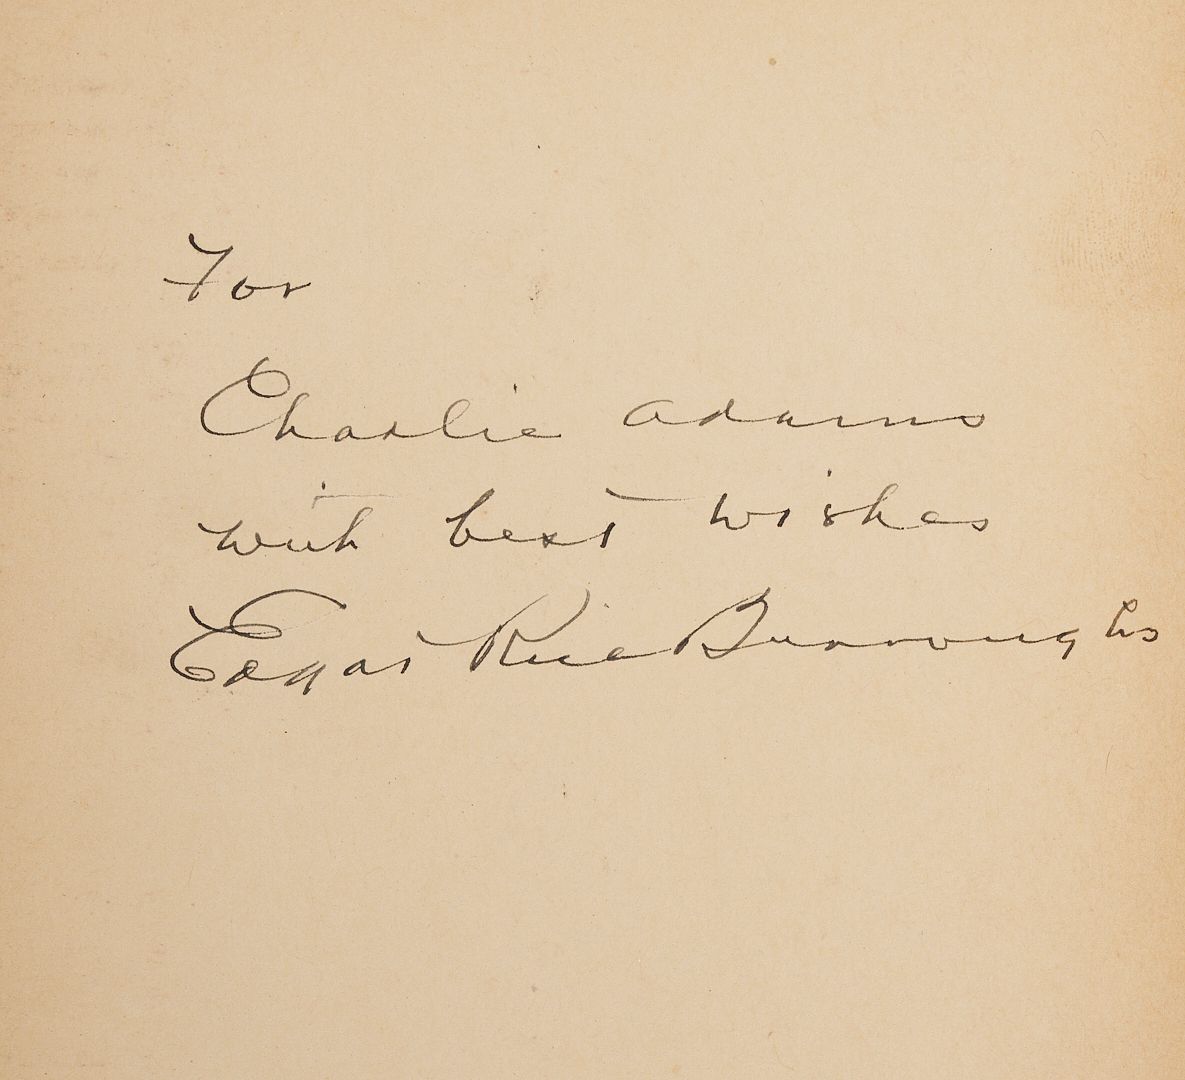 For
Charlie Adams
with best wishes
Edgar Rice Burroughs